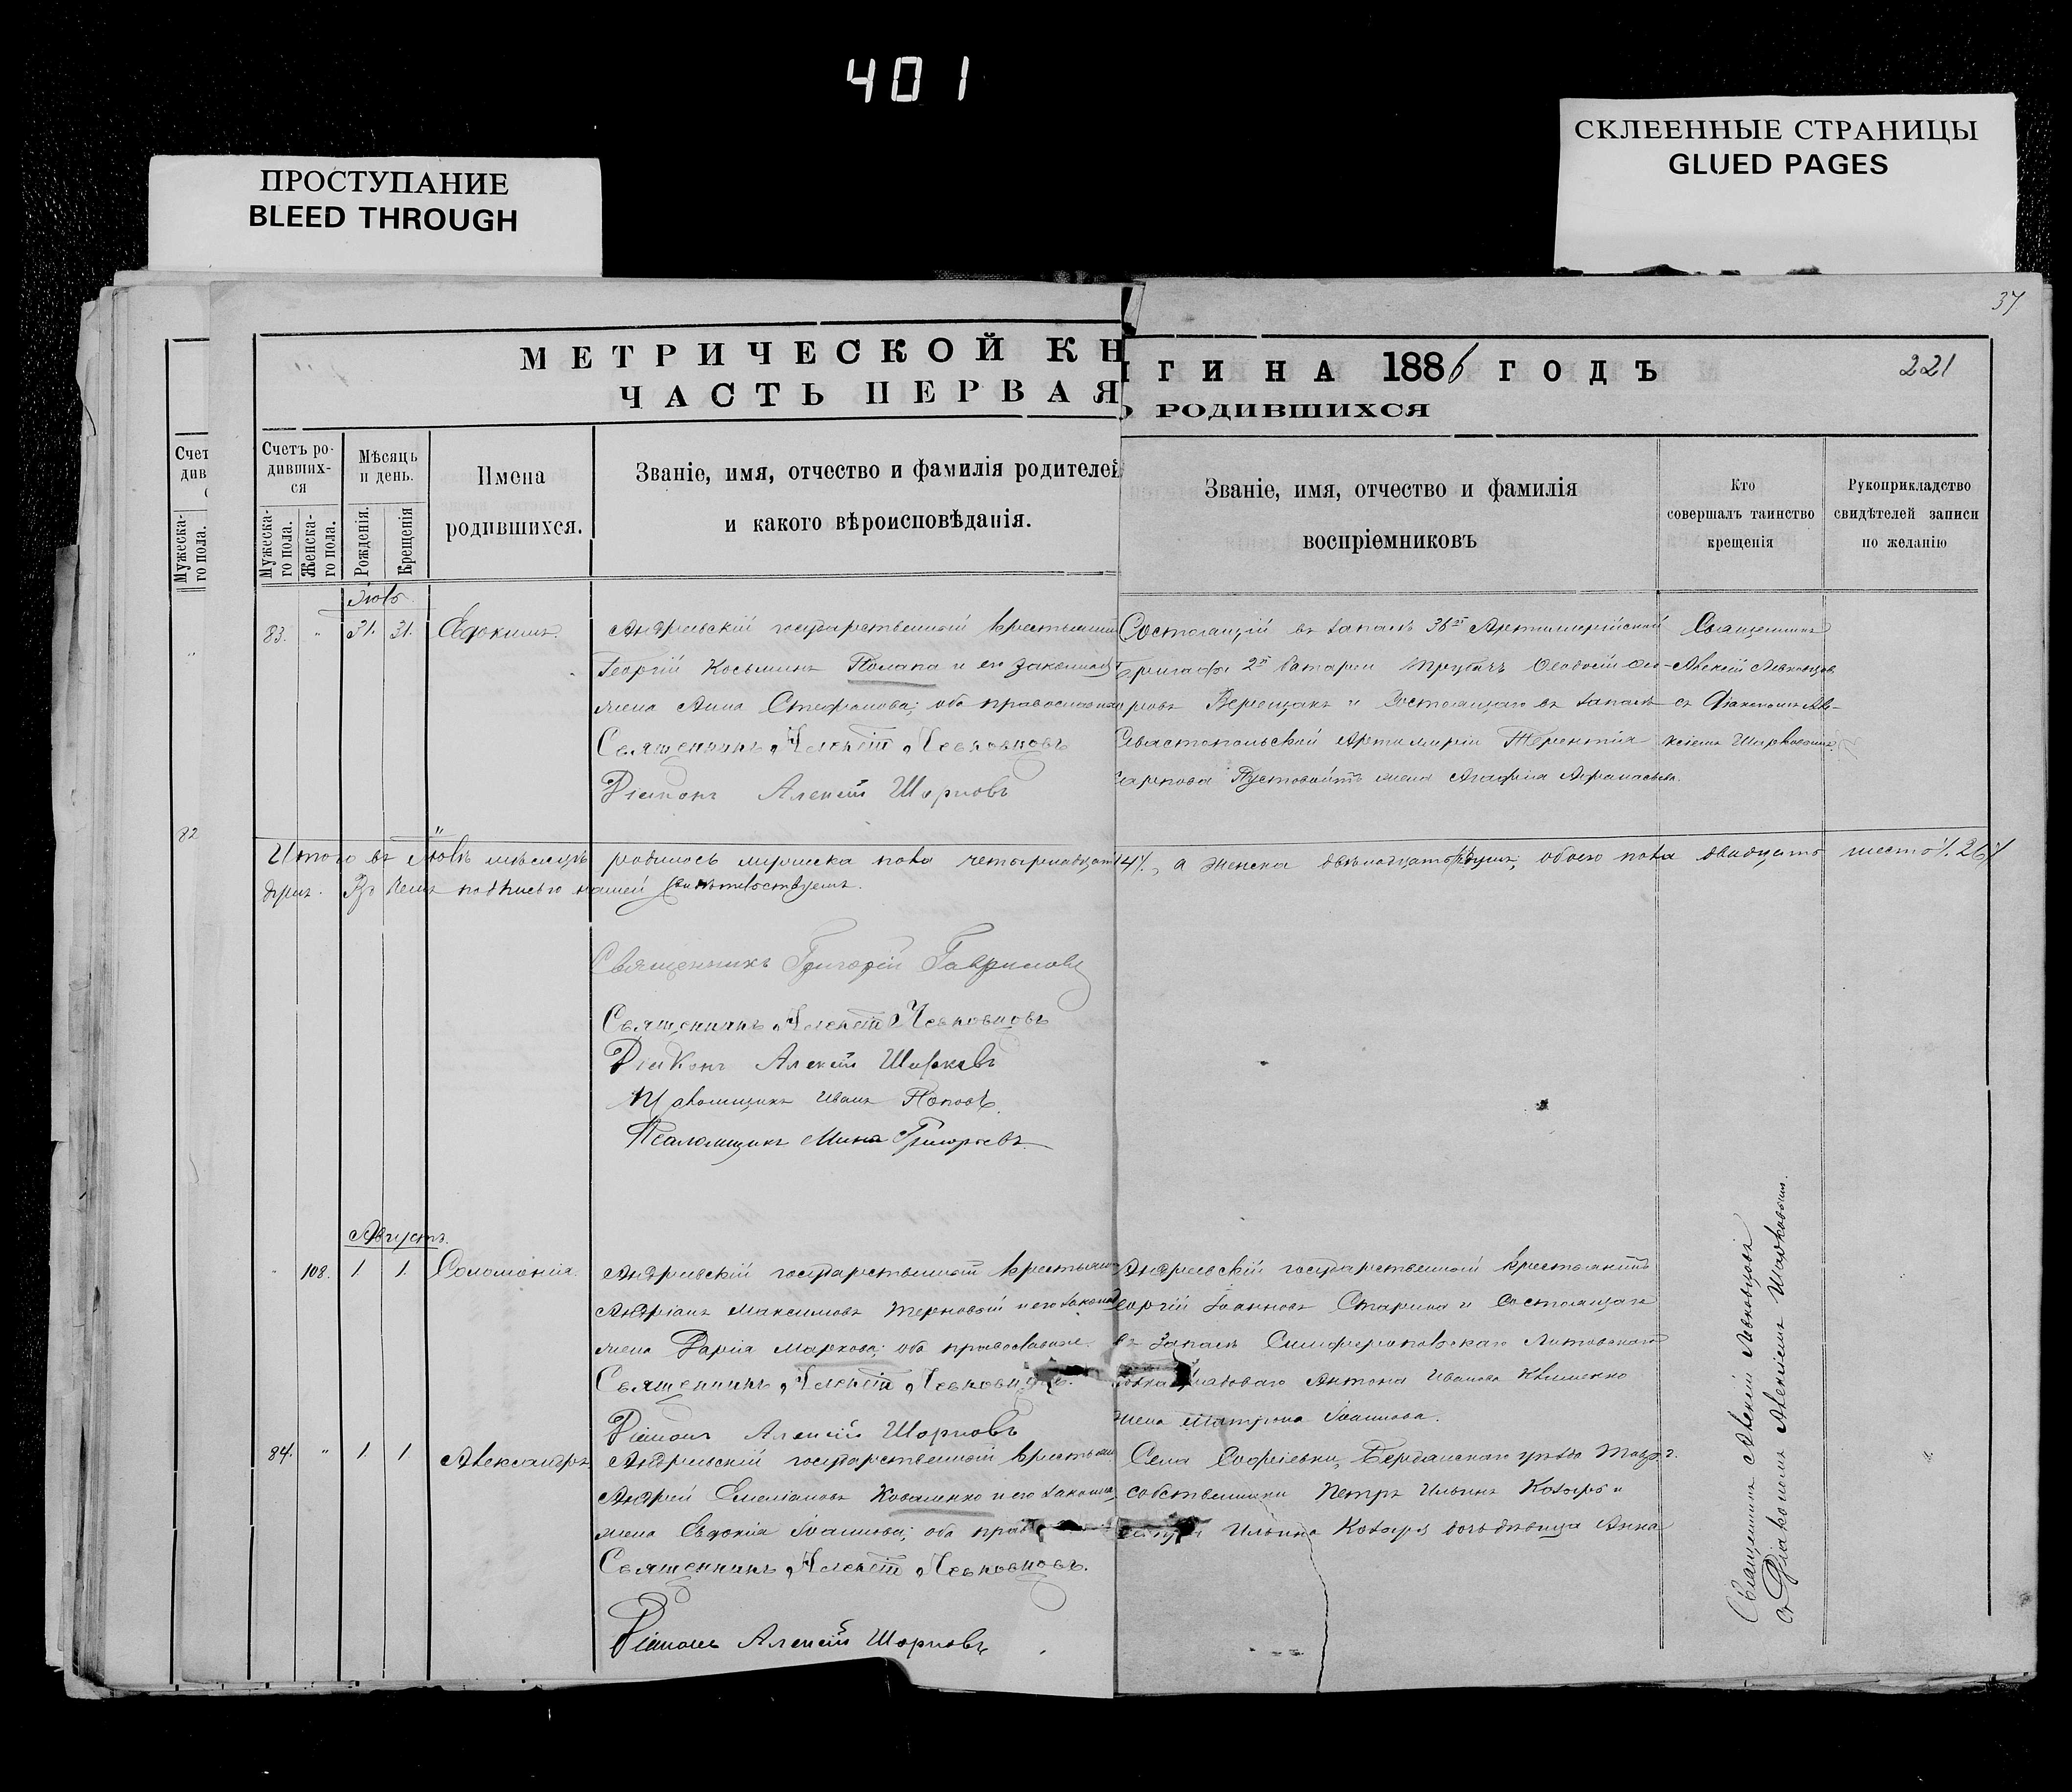 401
ПРОСТУПАНИЕ
BLEED THROUGH
СКЛЕЕННЫЕ СТРАНИЦЫ
GLUED PAGES
37
МЕТРИЧЕСКОЙ КН
ЧАСТЬ ПЕРВАЯ
ГИ НА 1886 ГОДЪ
221
РОДИВШИХСЯ
Счет
див
Мужеска-
го пола.
82
Счетъ ро-
дивших-
ся
Мужеска-
го пола.
Женска-
го пола.
Мѣсяцъ
и день.
Рожденія.
Крещенія
Имена
родившихся.
Званіе, имя, отчество и фамилія родителей
и какого вѣроисповѣданія.
Званіе, имя, отчество и фамилія
воспріемниковъ
Кто
совершалъ таинство
крещенія
Рукоприкладство
свидѣтелей записи
по желанію
83. " 31. 31. Евдокимъ.
Андреевскій государственный крестьянин
Георгій Косьминъ и его законная
жена Анна Стефанова; оба православные
Священникъ Алексій Левковцовъ
Діаконъ Алексій Шарковъ
Состоящій въ запасѣ 36й Артиллерійской
2й батареи трубачъ
Верещакъ и Состоящаго въ запасѣ
Севастопольской Артиллеріи Терентія
Карпова Пустовойтъ жена Агафія Афанасьева.
Священникъ
Алексій Левковцовъ
съ Діакономъ Але-
ксіемъ Шарковымъ
Итого въ Іюлѣ мѣсяцѣ родилось мужеска пола четырнадцать 14., а женска двѣнадцать душъ, обоего пола двадцать шесть 26
подписью нашей свидѣтельствуемъ.
Священникъ Григорій Гавриловъ
Священникъ Алексій Левковцовъ
Діаконъ Алексій Шарковъ
Псаломщикъ Иванъ Поповъ.
Псаломщикъ Мина Григорьевъ
Августъ.
108. 1. 1. Соломонія.
Андреевскій государственный крестьянин
Андріанъ Максимовъ Терновой и его законная
жена Дарія Маркова; оба православные.
Священникъ Алексій Левковцовъ.
Діаконъ Алексій Шарковъ
Андреевскій государственный крестьянинъ
Георгій Іоанновъ Старина и состоящаго
въ запасѣ Симферопольскаго
рядоваго Антона Иванова Клименко
жена Матрона Іоаннова.
84. " 1. 1. Александръ
Андреевскій государственный крестьянин
Андрей Емеліановъ Коваленко и его законная
жена Евдокія Іоаннова; оба прав
Священникъ Алексій Левковцовъ.
Діаконъ Алексій Шарковъ
Села Софіевки, Бердянскаго уѣзда Тавр. г.
собственники Петръ Ильинъ Козырь и
Ильина Козыря дочь дѣвица Анна
Священникъ Алексій Левковцовъ
съ Діакономъ Алексіемъ Шарковымъ.